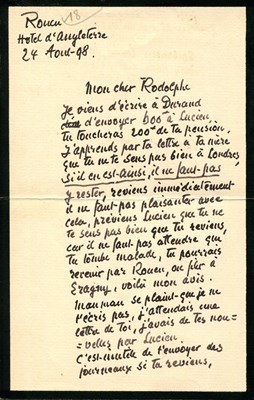 Rouen
18
Hotel d'Angleterre
24 Aout-98.
Mon cher Rodolphe
Je viens d'écrire à Durand
d'envoyer 600 à Lucien,
tu toucheras 200 de ta pension,
J'apprends par ta lettre à ta mère
que tu ne te sens pas bien à Londres,
si il en est-ainsi, il ne faut-pas
y rester, reviens immédiatement
il ne faut-pas plaisanter avec
cela, préviens Lucien que tu ne
te sens pas bien que tu reviens,
car il ne faut pas attendre que
tu tombe malade, tu pourrais
revenir par Rouen, ou filer à
Eragny, voilà mon avis.
Maman se plaint-que je ne
t'écris pas, j'attendais une
lettre de toi, j'avais de tes nou=
=velles par Lucien.
C'est-inutile de t'envoyer des
journeaux si tu reviens,